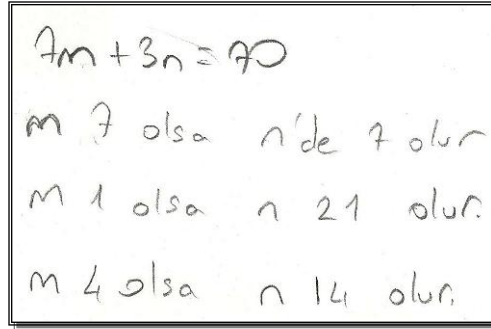 7m+3n=70
m 7 olsa n'de 7 olur
m 1 olsa n 21 olur.
m 4 olsa n 14 olur.